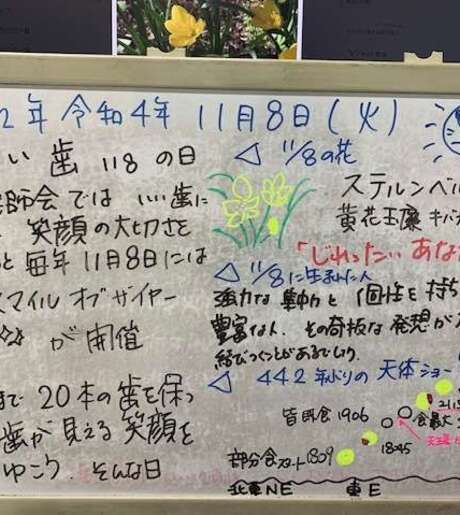 2年 令和4年 11月8日(火)
い 歯 118 の日
師会では いい歯に
笑顔の大切さを
と 毎年 11月8日には
スマイル オブ ザ イヤー
が 開催
まで 20本の歯を保っ
歯が見える笑顔を
ゆこう。そんな日
◁ 11/8の花
ステルンベル
黄花玉簾 キバナ
「じれったい あな
◁ 11/8に生まれた人
強力な集中力と 個性を持ち
豊富な人。その奇抜な発想が
結びつくことがあるでしょう。
◁ 442年ぶりの 天体ショー
皆既食 1906
食最大
部分食スタート 1809
1845
北東NE 東E